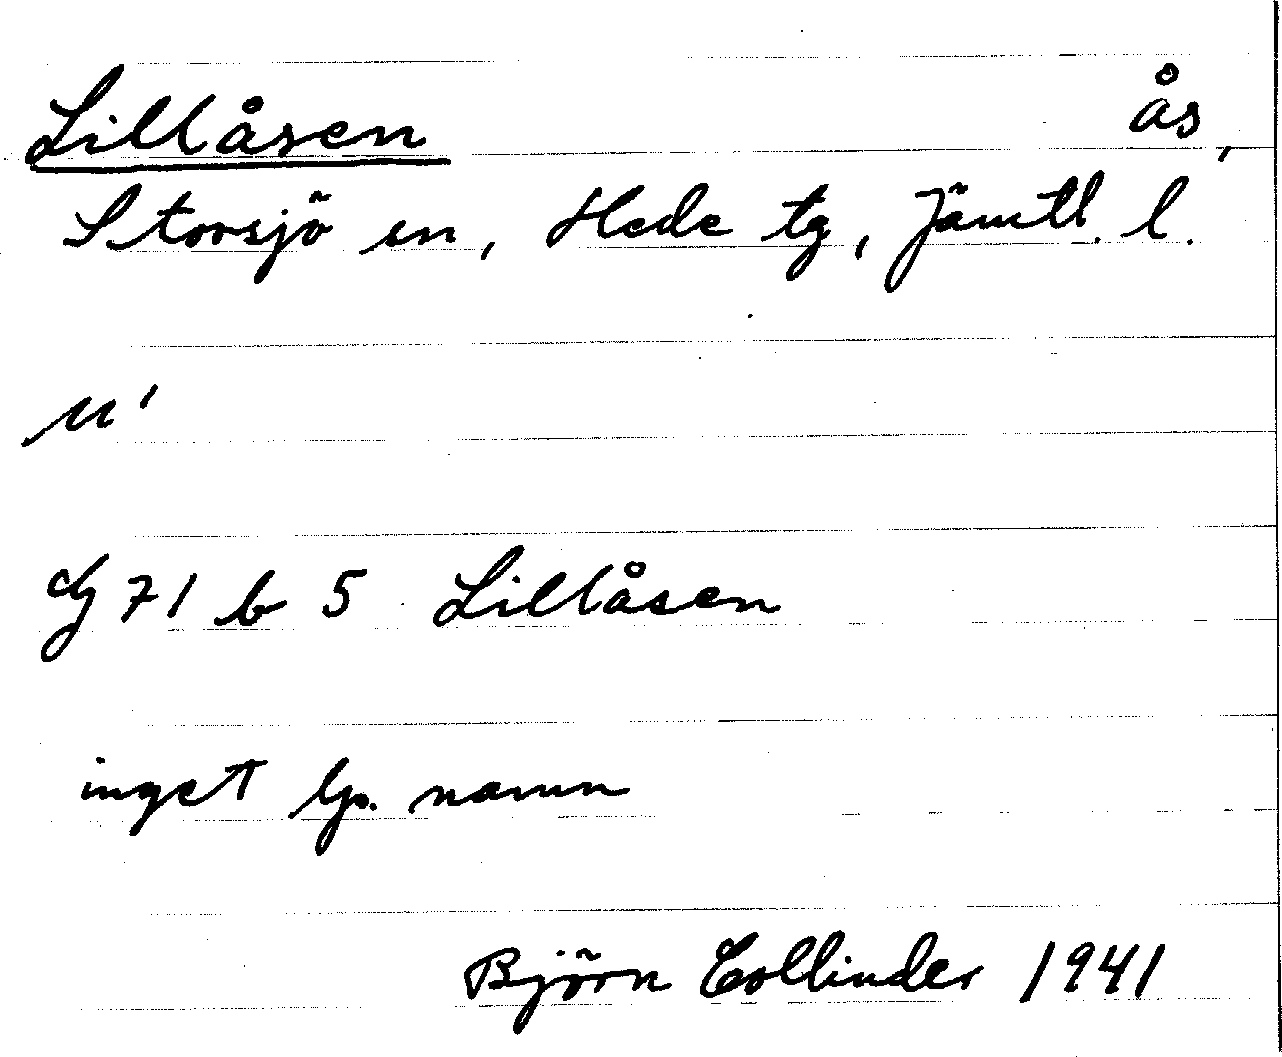 Lillåsen ås,
Storsjö sn, Hede tg, Jämtl. l.
dg 71 b 5 Lillåsen
inget lp. namn
Björn Collinder 1941